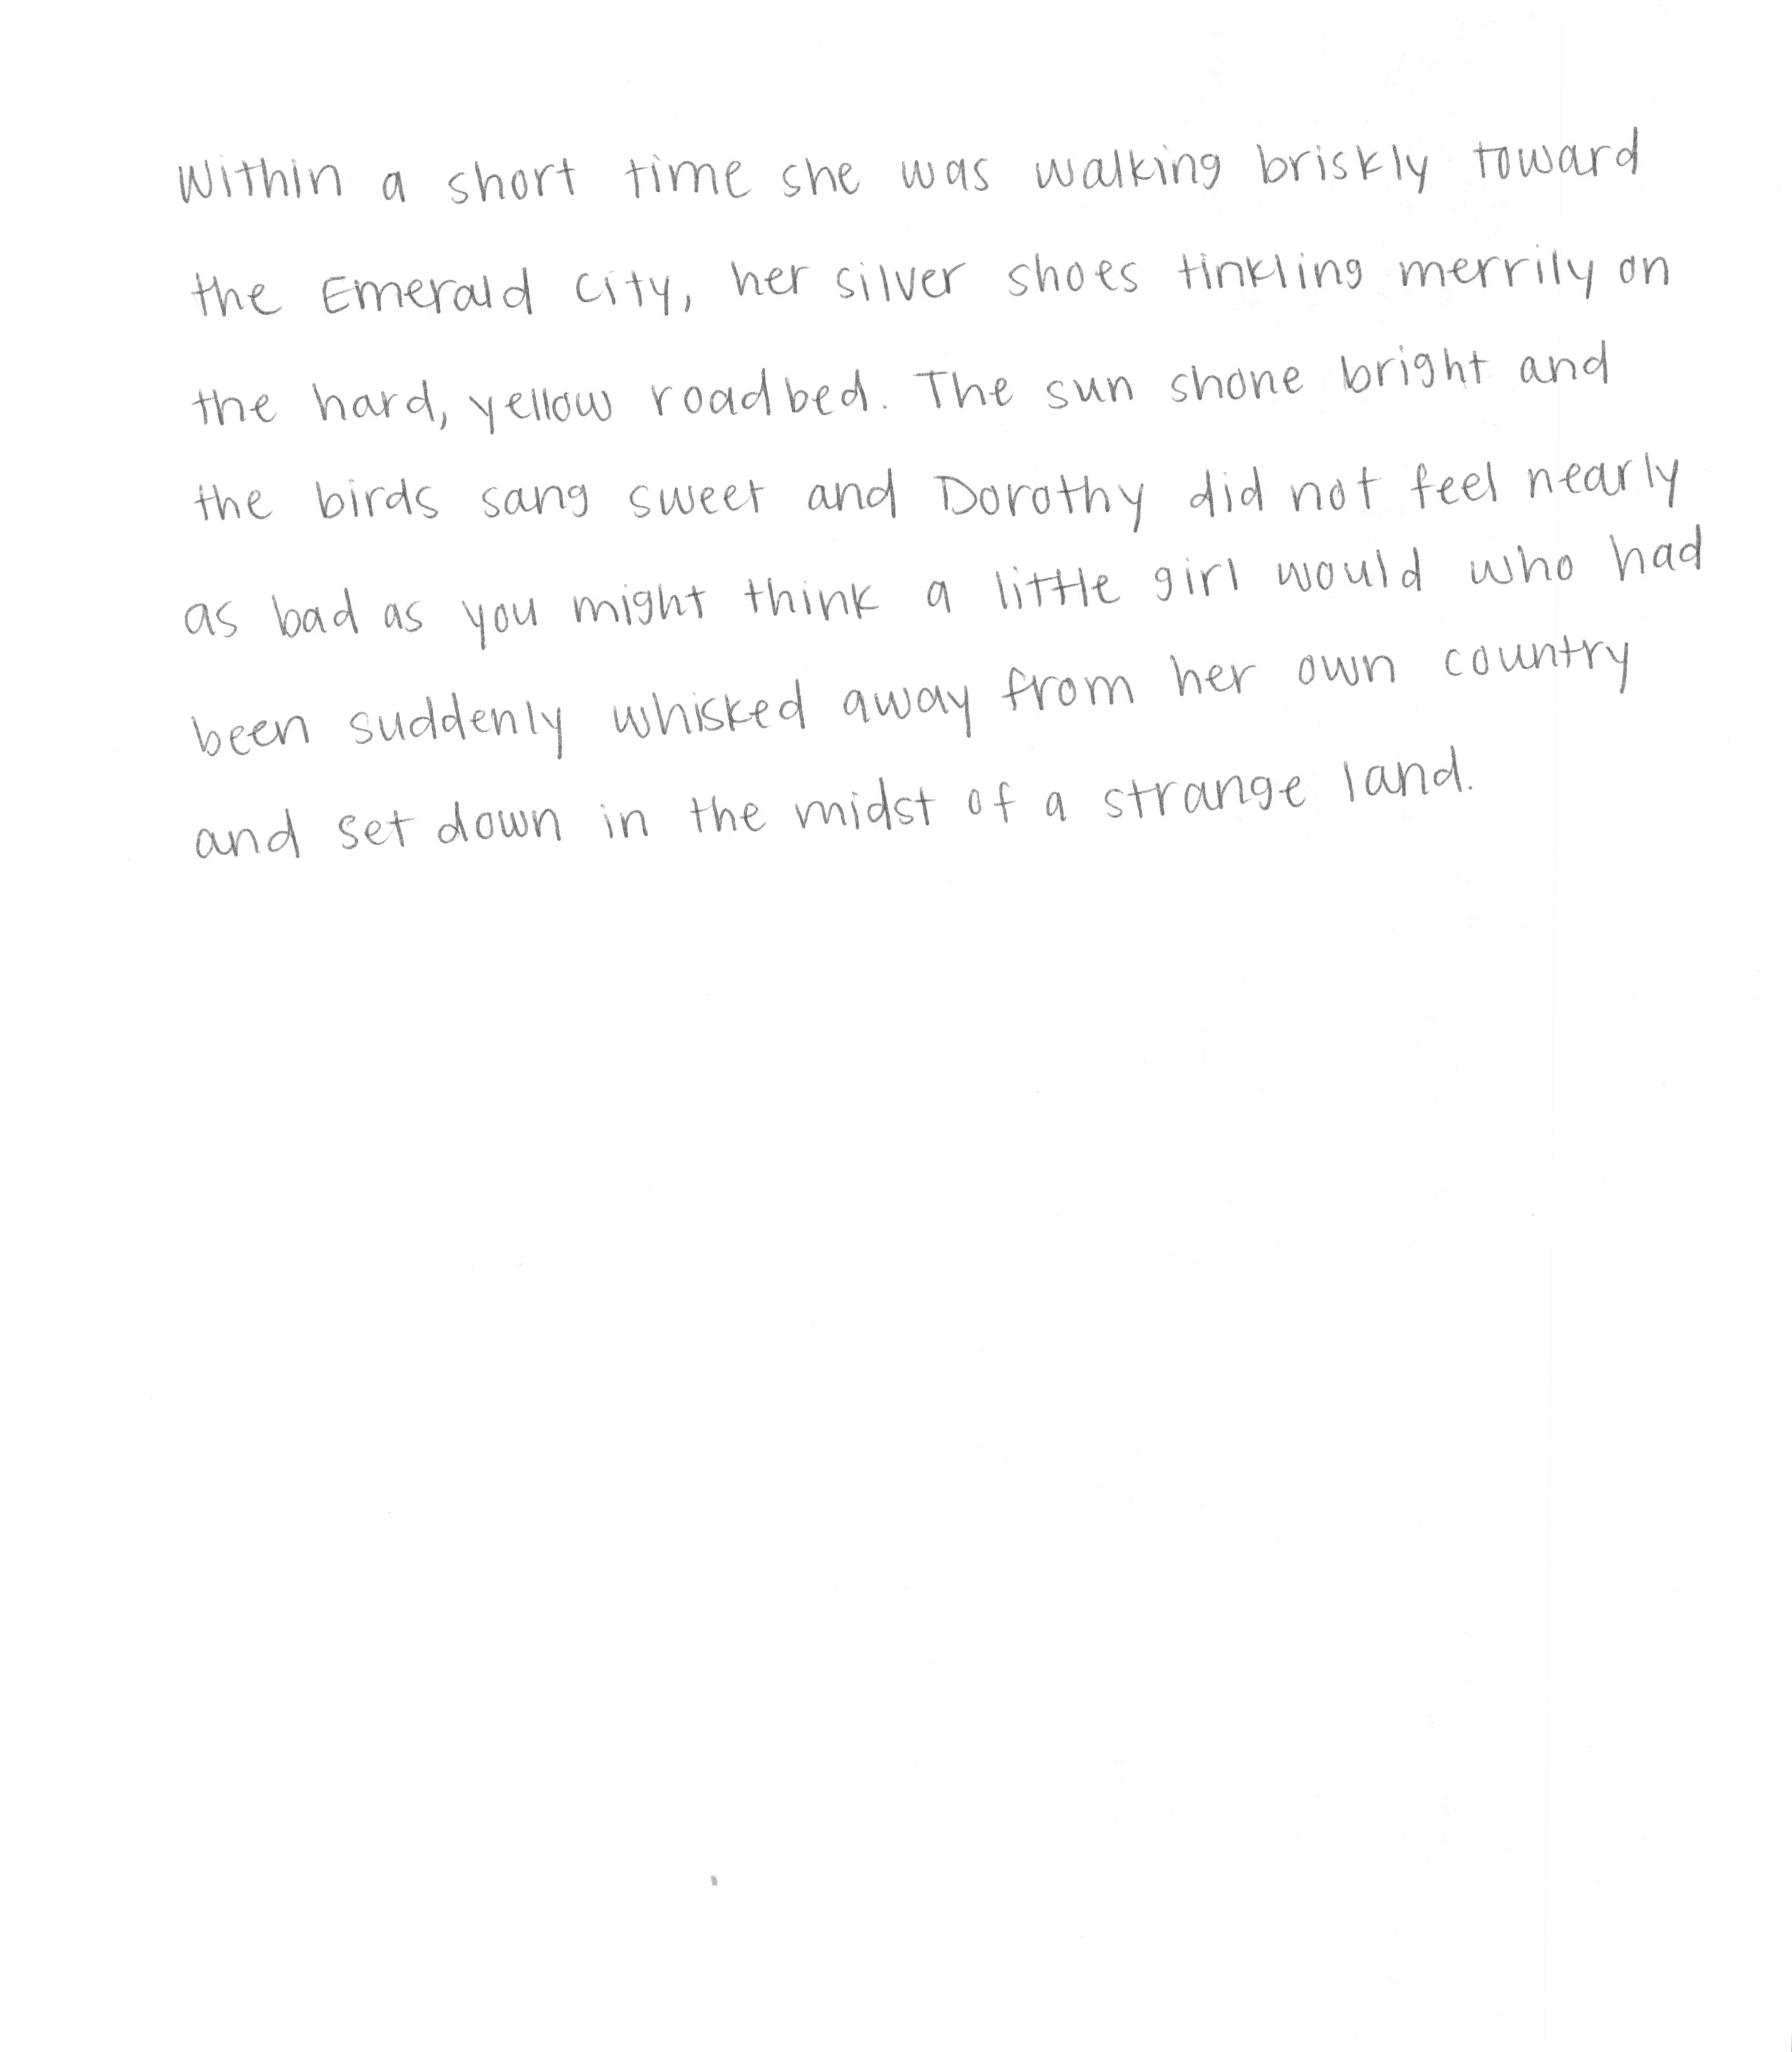 Within a short time she was walking briskly toward
the Emerald City, her silver shoes tinkling merrily on
the hard, yellow roadbed. The sun shone bright and
the birds sang sweet and Dorothy did not feel nearly
as bad as you might think a little girl would who had
been suddenly whisked away from her own country
and set down in the midst of a strange land.